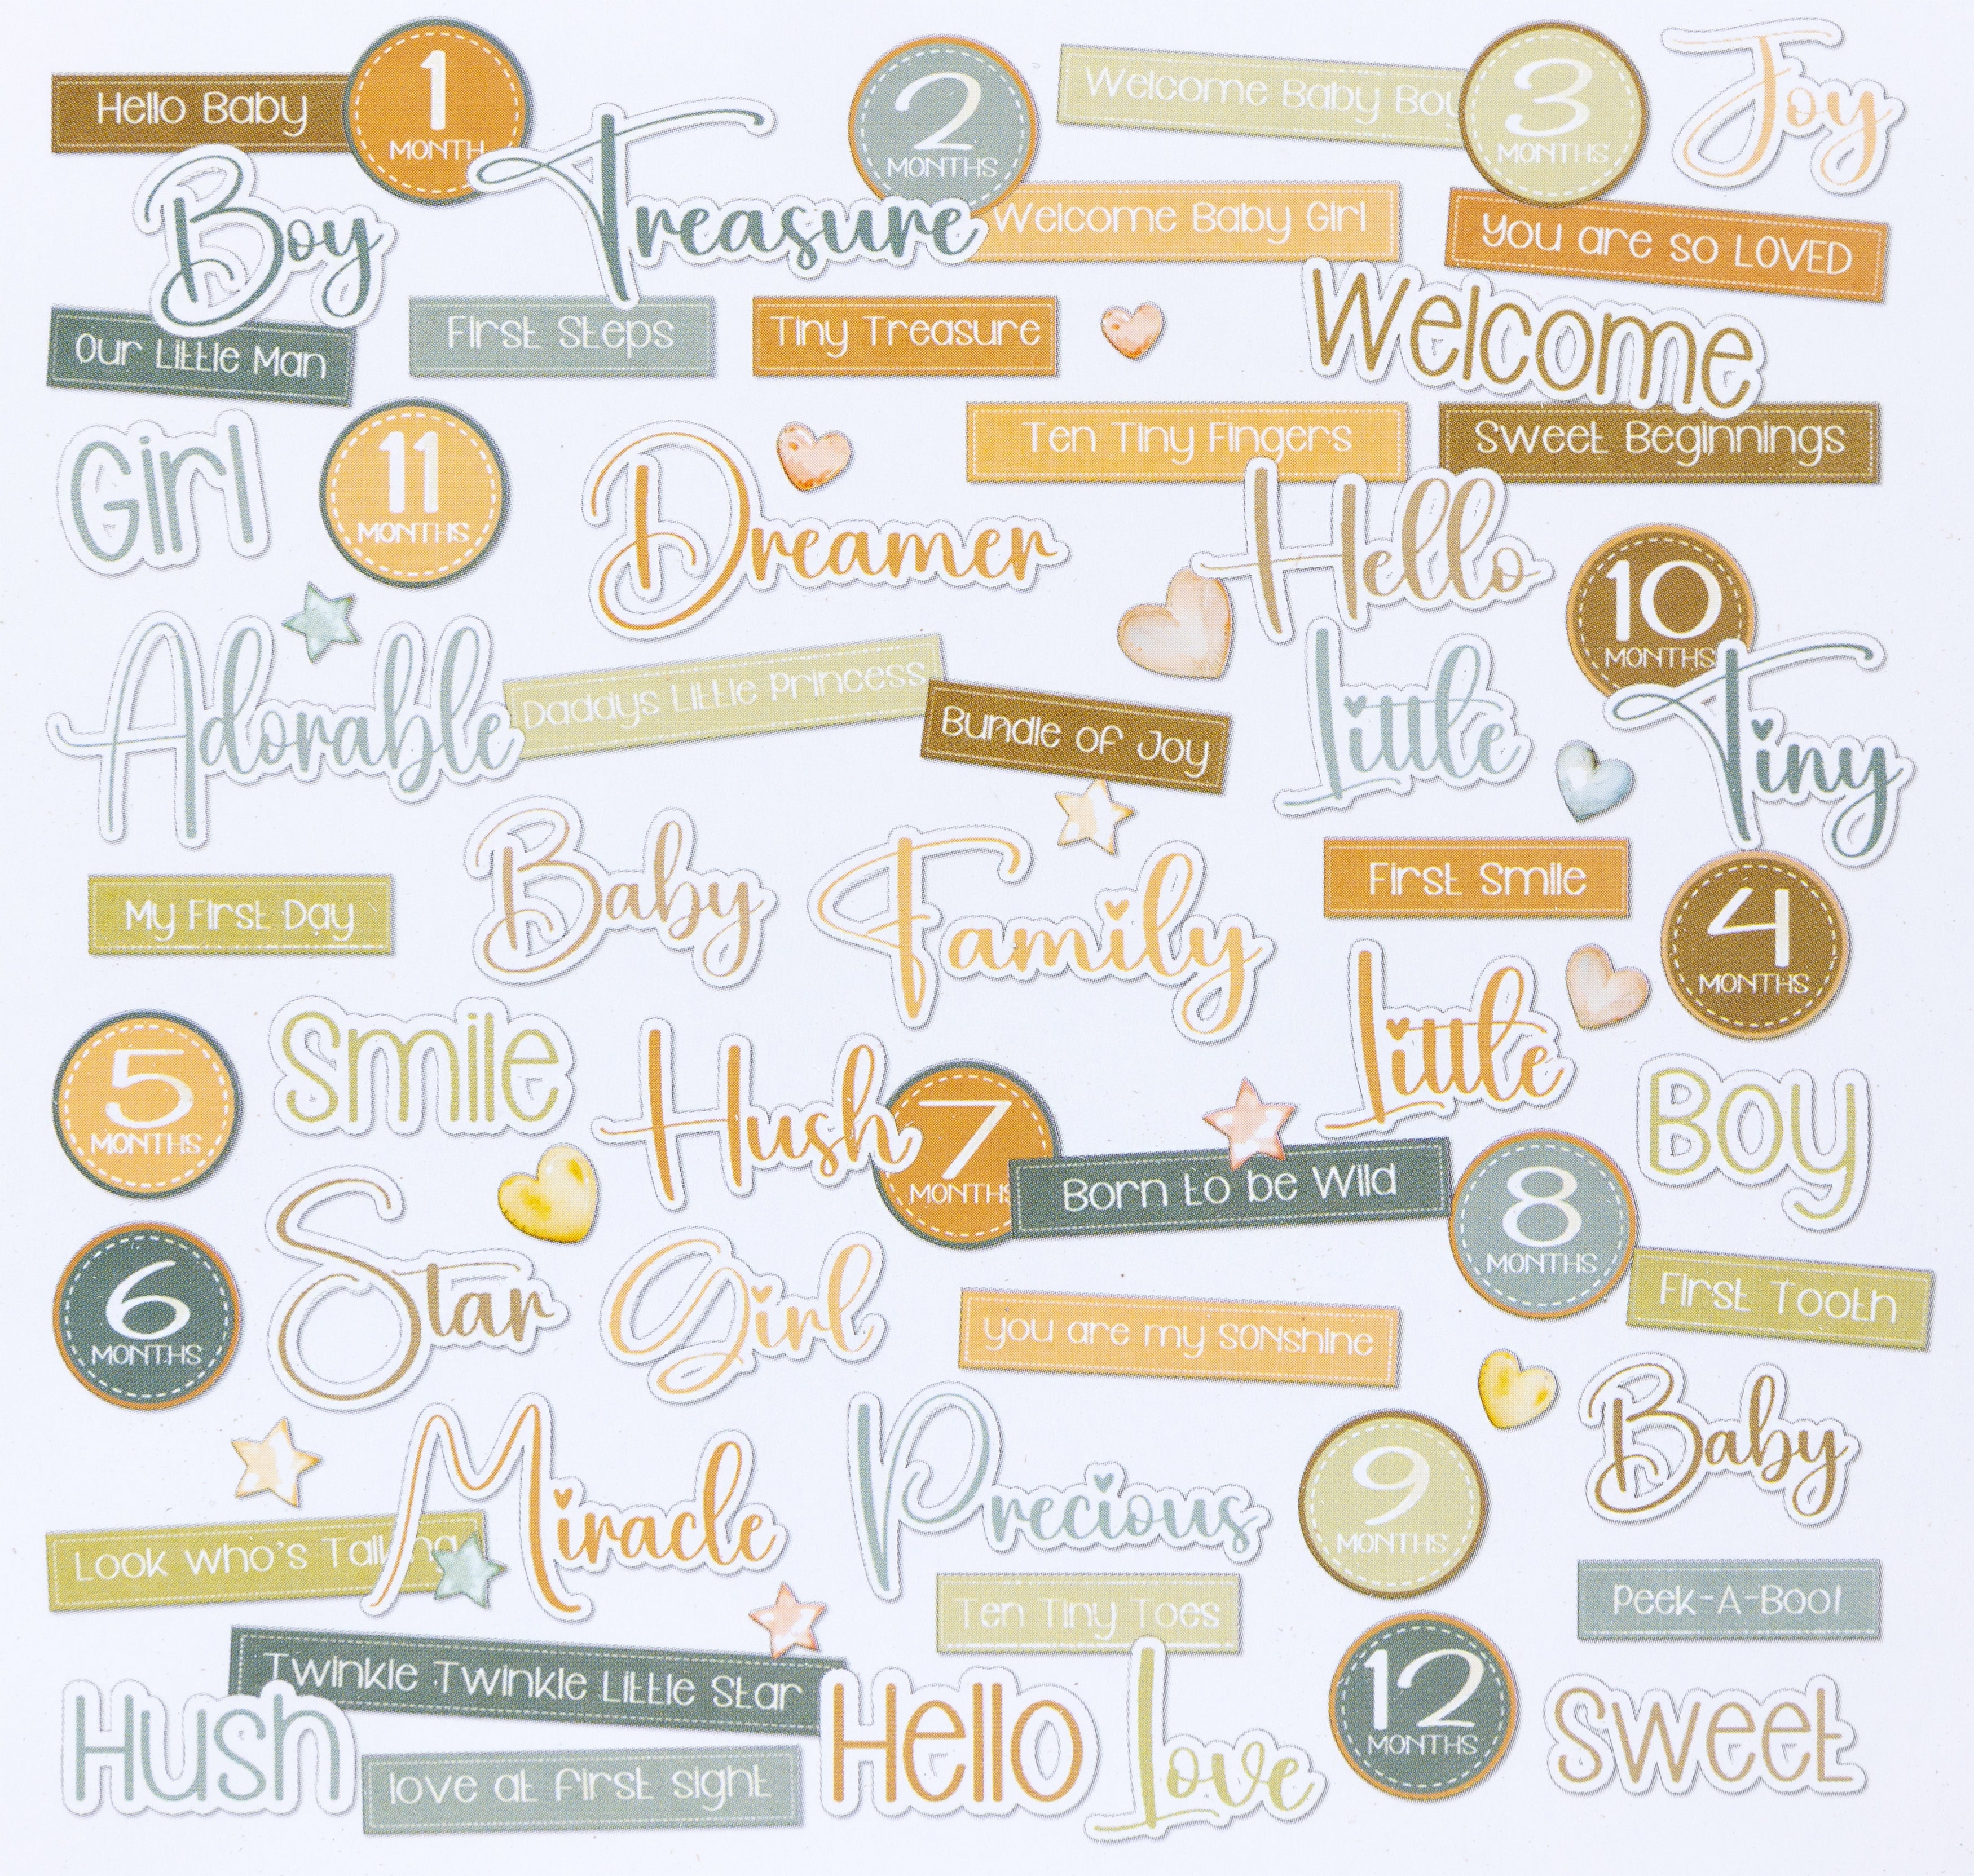 Hello Baby
1
MONTH
2
MONTHS
Welcome Baby Boy
3
MONTHS
Joy
Boy
Treasure
Welcome Baby Girl
you are so LOVED
Our Little Man
First Steps
Tiny Treasure
Welcome
Girl
11
MONTHS
Dreamer
Ten Tiny Fingers
Sweet Beginnings
Hello
10
MONTHS
Adorable
Daddys Little Princess
Bundle of Joy
Little
Tiny
My First Day
Baby
Family
First Smile
4
MONTHS
5
MONTHS
Smile
Hush
7
MONTHS
Little
Boy
Born to be Wild
8
MONTHS
6
MONTHS
Star
Girl
you are my SONshine
First Tooth
Miracle
Precious
9
MONTHS
Baby
Look who's Talking
Ten Tiny Toes
Peek-A-Boo!
Twinkle Twinkle Little Star
Hush
love at first sight
Hello
Love
12
MONTHS
Sweet